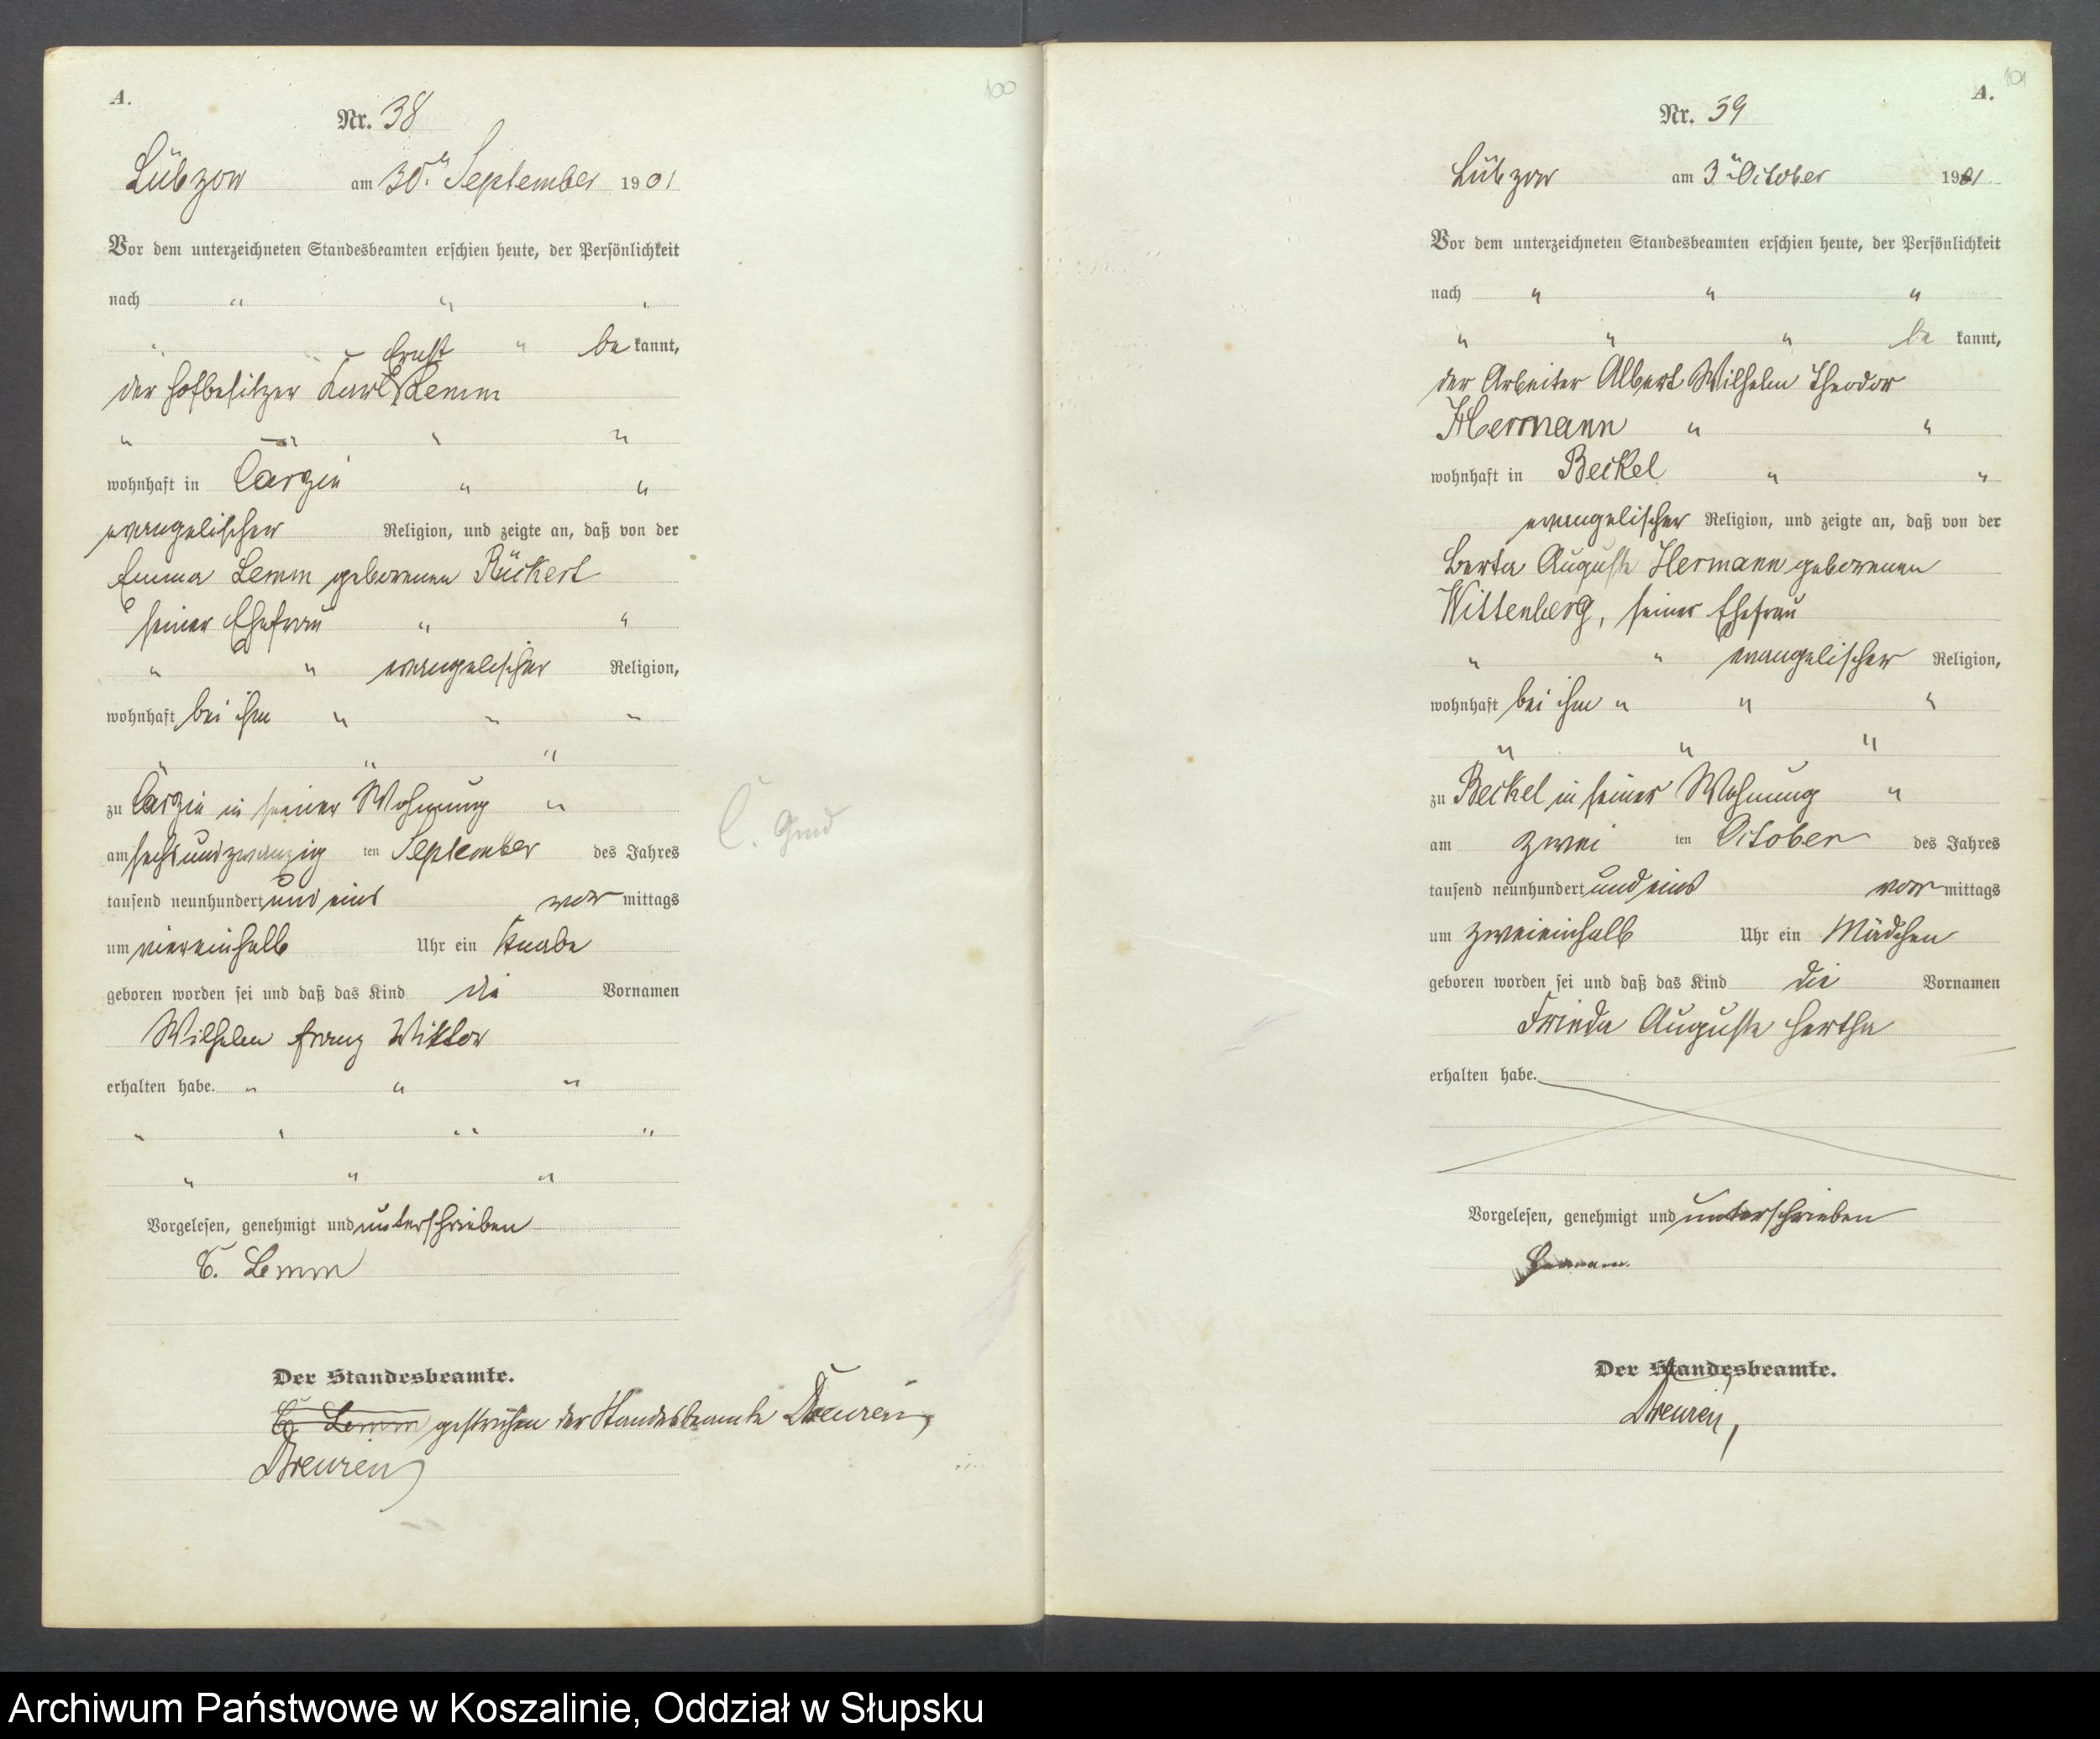 100
A.
Nr. 38
Lübzow am 30.ten September 1901
Vor dem unterzeichneten Standesbeamten erschien heute, der Persönlichkeit
nach " " "
" " Ernst " be kannt,
der Hofbesitzer Karl Lemm
" " " "
wohnhaft in Carzin " "
evangelischer Religion, und zeigte an, daß von der
Emma Lemm geborenen Rückert
seiner Ehefrau " "
" " evangelischer Religion,
wohnhaft bei ihm " " "
" " "
zu Carzin in seiner Wohnung "
am sechsundzwanzig ten September des Jahres
tausend neunhundert und eins vor mittags
um viereinhalb Uhr ein Knabe
geboren worden sei und daß das Kind die Vornamen
Wilhelm Franz Wiktor
erhalten habe. " " "
" " " "
" " "
Vorgelesen, genehmigt und unterschrieben
E. Lemm
Der Standesbeamte.
E. Lemm gestrichen der Standesbeamte
101
A.
Nr. 39
Lübzow am 3.ten October 1901
Vor dem unterzeichneten Standesbeamten erschien heute, der Persönlichkeit
nach " " "
" " " be kannt,
der Arbeiter Albert Wilhelm Theodor
Hermann " "
wohnhaft in Beckel " "
evangelischer Religion, und zeigte an, daß von der
Berta Auguste Hermann geborenen
Wittenberg, seiner Ehefrau
" " evangelischer Religion,
wohnhaft bei ihm " " "
" " "
zu Beckel in seiner Wohnung "
am zwei ten October des Jahres
tausend neunhundert und eins vor mittags
um zweieinhalb Uhr ein Mädchen
geboren worden sei und daß das Kind die Vornamen
Frieda Auguste Hertha
erhalten habe.
Vorgelesen, genehmigt und unterschrieben
Hermann.
Der Standesbeamte.
Archiwum Państwowe w Koszalinie, Oddział w Słupsku